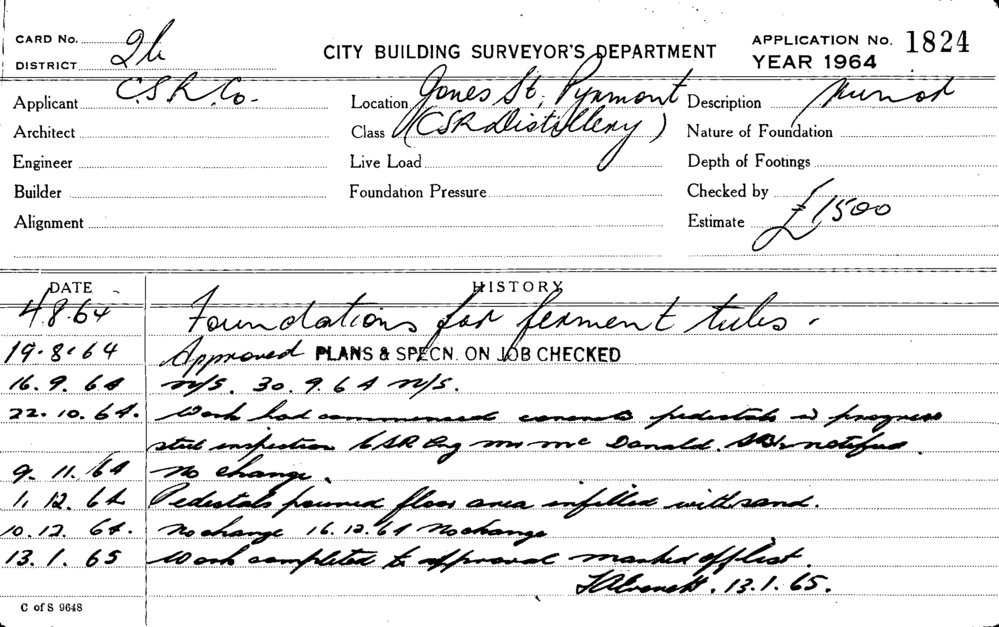 CARD No.
DISTRICT 26
CITY BUILDING SURVEYOR'S DEPARTMENT
APPLICATION No. 1824
YEAR 1964
Applicant C.S.R. Co.
Location Jones St, Pyrmont
Description Minor
Architect
Class (CSR Distillery)
Nature of Foundation
Engineer
Live Load
Depth of Footings
Builder
Foundation Pressure
Checked by
Alignment
Estimate £1500
DATE HISTORY
4.8.64 Foundations for ferment tubs.
19.8.64 Approved PLANS & SPECN. ON JOB CHECKED
16.9.64 N/S. 30.9.64 N/S.
22.10.64. Work had commenced concrete pedestals in progress
steel inspection CSR Eng Mr Mc Donald. notified.
9.11.64 No change.
1.12.64 Pedestals poured floor area infilled with sand.
10.12.64. No change 16.12.64 No change
13.1.65 Work completed to approval marked off list.
13.1.65.
C of S 9648